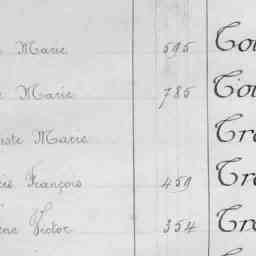 Marie 595 Cou
Marie 785 Cou
Marie Cre
François 459 Cre
Victor 354 Cre